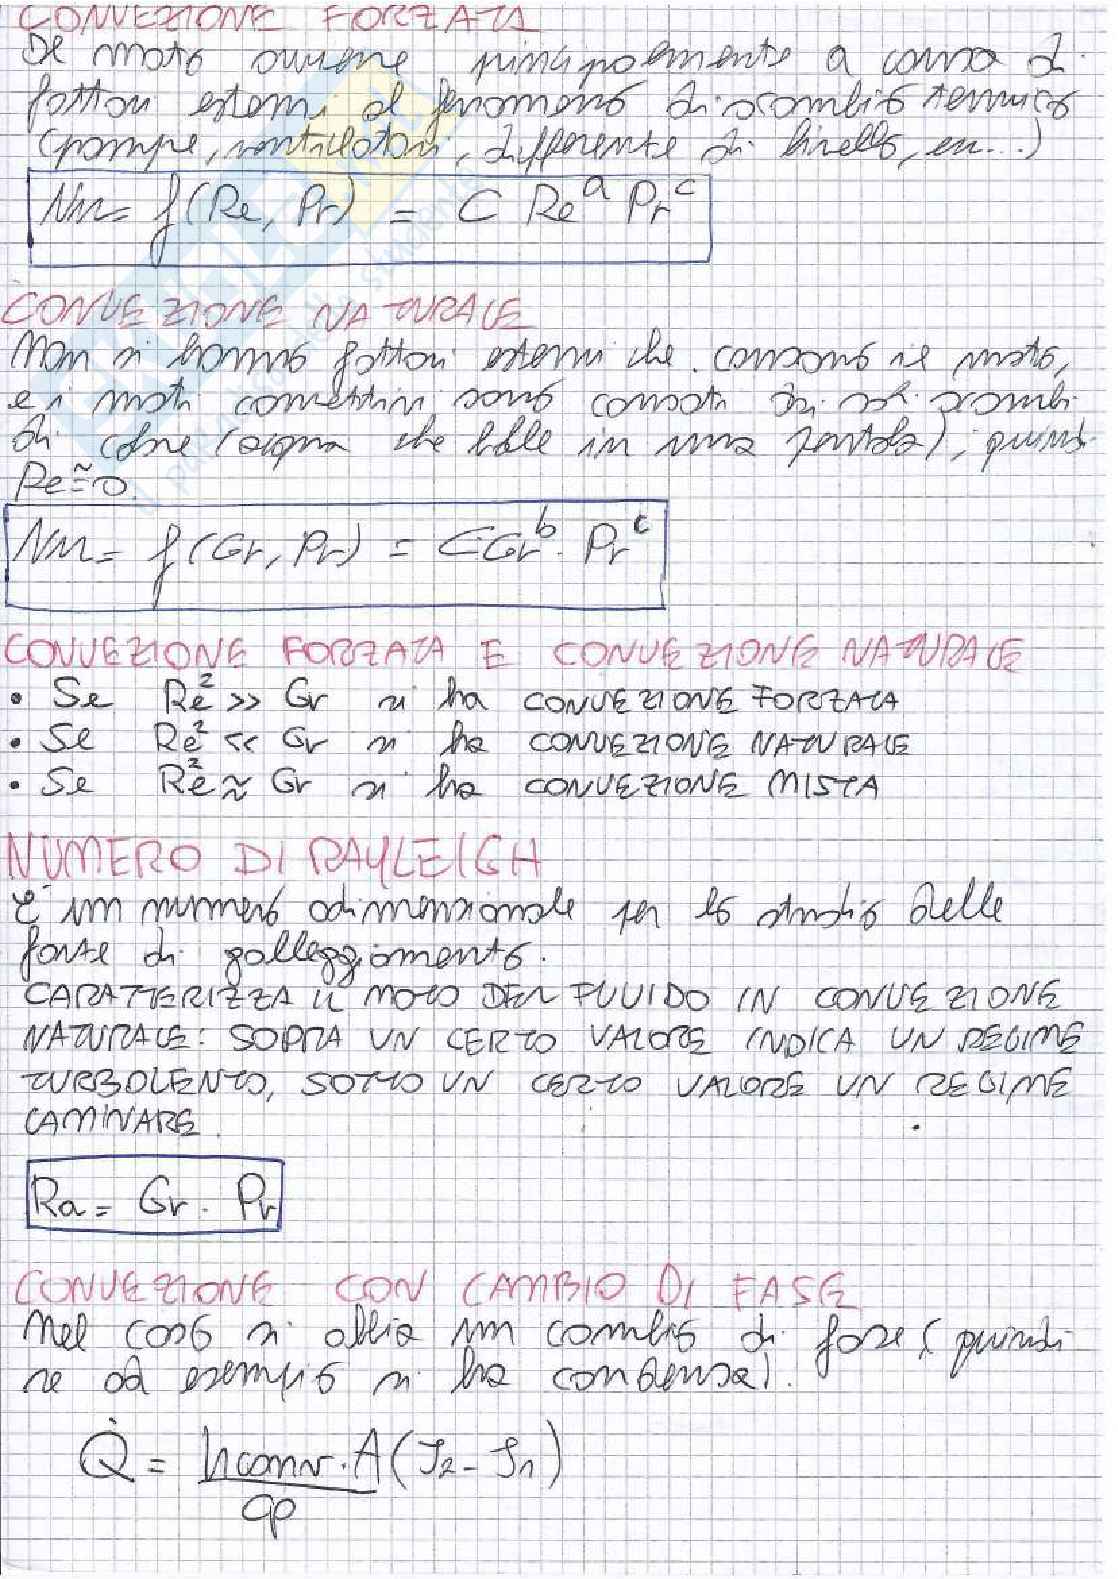 CONVEZIONE FORZATA
Il moto avviene principalmente a causa di
fattori esterni al fenomeno di scambio termico
(pompe, ventilatori, differenze di livello, ecc...)
Nu = f(Re, Pr) = C Re^a Pr^c
CONVEZIONE NATURALE
Non si hanno fattori esterni che causano il moto,
e i moti convettivi sono causati da soli scambi
di calore (acqua che bolle in una pentola), quindi
Re ≅ 0.
Nu = f(Gr, Pr) = C Gr^b · Pr^c
CONVEZIONE FORZATA E CONVEZIONE NATURALE
• Se Re² >> Gr si ha CONVEZIONE FORZATA
• Se Re² << Gr si ha CONVEZIONE NATURALE
• Se Re² ≈ Gr si ha CONVEZIONE MISTA
NUMERO DI RAYLEIGH
È un numero adimensionale per lo studio delle
forze di galleggiamento.
CARATTERIZZA IL MOTO DEL FLUIDO IN CONVEZIONE
NATURALE: SOPRA UN CERTO VALORE INDICA UN REGIME
TURBOLENTO, SOTTO UN CERTO VALORE UN REGIME
LAMINARE.
Ra = Gr · Pr
CONVEZIONE CON CAMBIO DI FASE
Nel caso si abbia un cambio di fase (quindi
se ad esempio si ha condensa).
Q̇ = hconv · A (J2 - J1)
cp